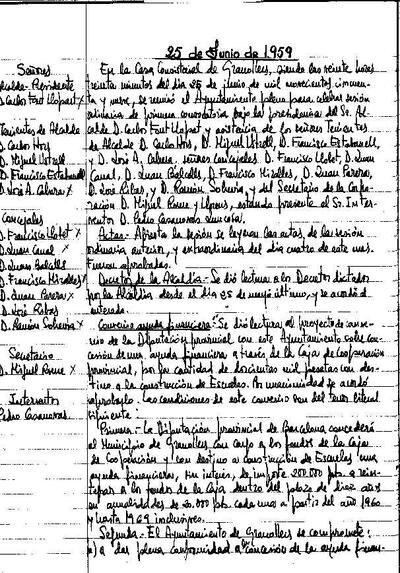 25 de Junio de 1959
Señores
Alcalde-Presidente
D. Carlos Font Llopart x
Tenientes de Alcalde
D. Carlos Hors
D. Miguel
D. Francisco Estabanell
D. José A. Cabrera x
Concejales
D. Francisco Llobet x
D. Juan Canal x
D. Juan
D. Francisco Miralles x
D. Juan Parera x
D. José Ribas
D. Ramón x
Secretario
D. Miguel x
Interventor
Pedro Casanovas
En la Casa Consistorial de Granollers, siendo las veinte horas
treinta minutos del día 25 de junio de mil novecientos cincuen-
ta y nueve, se reunió el Ayuntamiento pleno para celebrar sesión
ordinaria de primera convocatoria bajo la presidencia del Sr. Al-
calde D. Carlos Font Llopart y asistencia de los señores Tenientes
de Alcalde D. Carlos Hors, D. Miguel D. Francisco Estabanell,
y D. José A. Cabrera, señores Concejales D. Francisco Llobet, D. Juan
Canal, D. Juan D. Francisco Miralles, D. Juan Parera,
D. José Ribas, y D. Ramón y del Secretario de la Corpo-
ración D. Miguel y estando presente el Sr. Inter-
ventor D. Pedro Casanovas
Actas.- Abierta la sesión se leyeron las actas de la sesión
ordinaria anterior, y extraordinaria del día cuatro de este mes.
Fueron aprobadas.
Decretos de la Alcaldía.- Se dió lectura a los Decretos dictados
por la Alcaldía desde el día 25 de mayo último, y se acordó
enterado.
Convenio ayuda financiera.- Se dió lectura al proyecto de conve-
nio de la Diputación provincial con este Ayuntamiento sobre con-
cesión de una ayuda financiera a través de la Caja de Cooperación
provincial, por la cantidad de doscientas mil pesetas con des-
tino a la construcción de Escuelas. Por unanimidad se acordó
aprobarlo. Las condiciones de este convenio son del tenor literal
siguiente:
Primera.- La Diputación provincial de Barcelona concederá
al Municipio de Granollers con cargo a los fondos de la Caja
de Cooperación y con destino a construcción de Escuelas una
ayuda financiera, sin interés, de importe 200.000 pts. a rein-
tegrar a los fondos de la Caja dentro del plazo de diez años
en anualidades de 20.000 pts. cada una a partir del año 1960
y hasta 1969 inclusives.
Segunda.- El Ayuntamiento de Granollers se compromete:
a) a dar plena conformidad a la concesión de la ayuda finan-